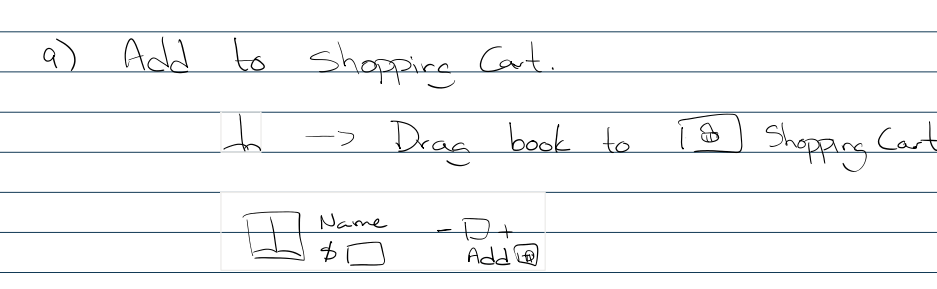 a) Add to Shopping Cart.
→ Drag book to Shopping Cart
Name - +
$ Add